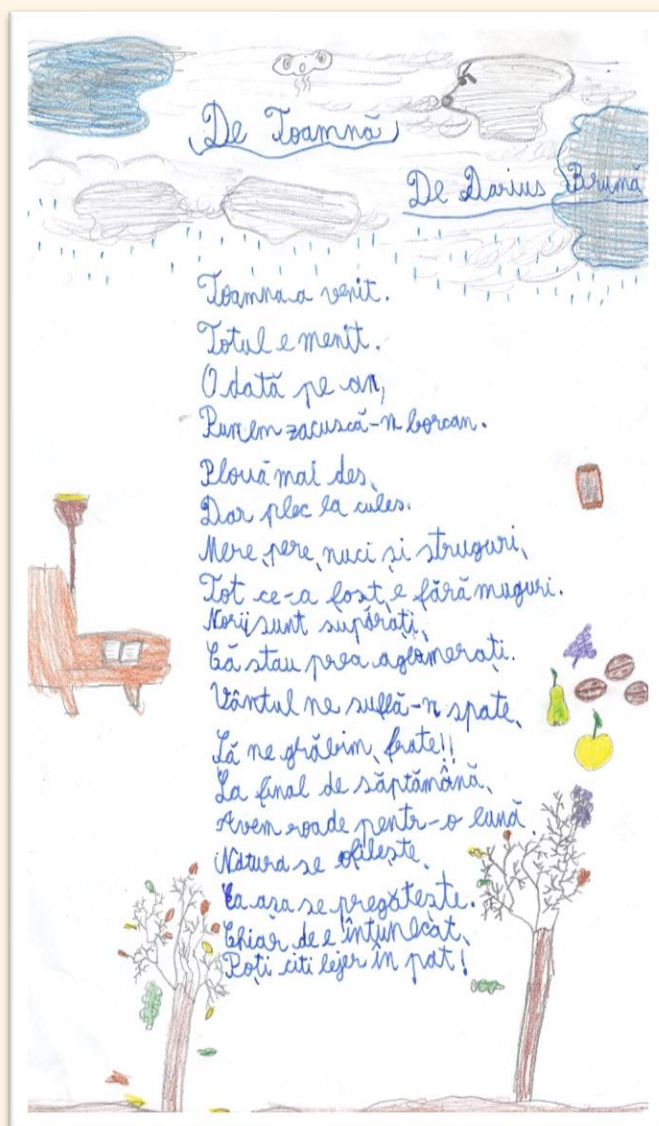 De Toamnă
De Darius Brumă
Toamna a venit.
Totul e menit.
O dată pe an,
Punem zacuscă-n borcan.
Plouă mai des,
Dar plec la cules.
Mere, pere, nuci și struguri,
Tot ce-a fost, e fără muguri.
Norii sunt supărați,
Că stau prea aglomerați.
Vântul ne suflă-n spate,
Să ne grăbim, frate!!
La final de săptămână,
Avem roade pentr-o lună.
Natura se ofilește,
Ca așa se pregătește.
Chiar de e întunecat,
Poți citi lejer în pat!